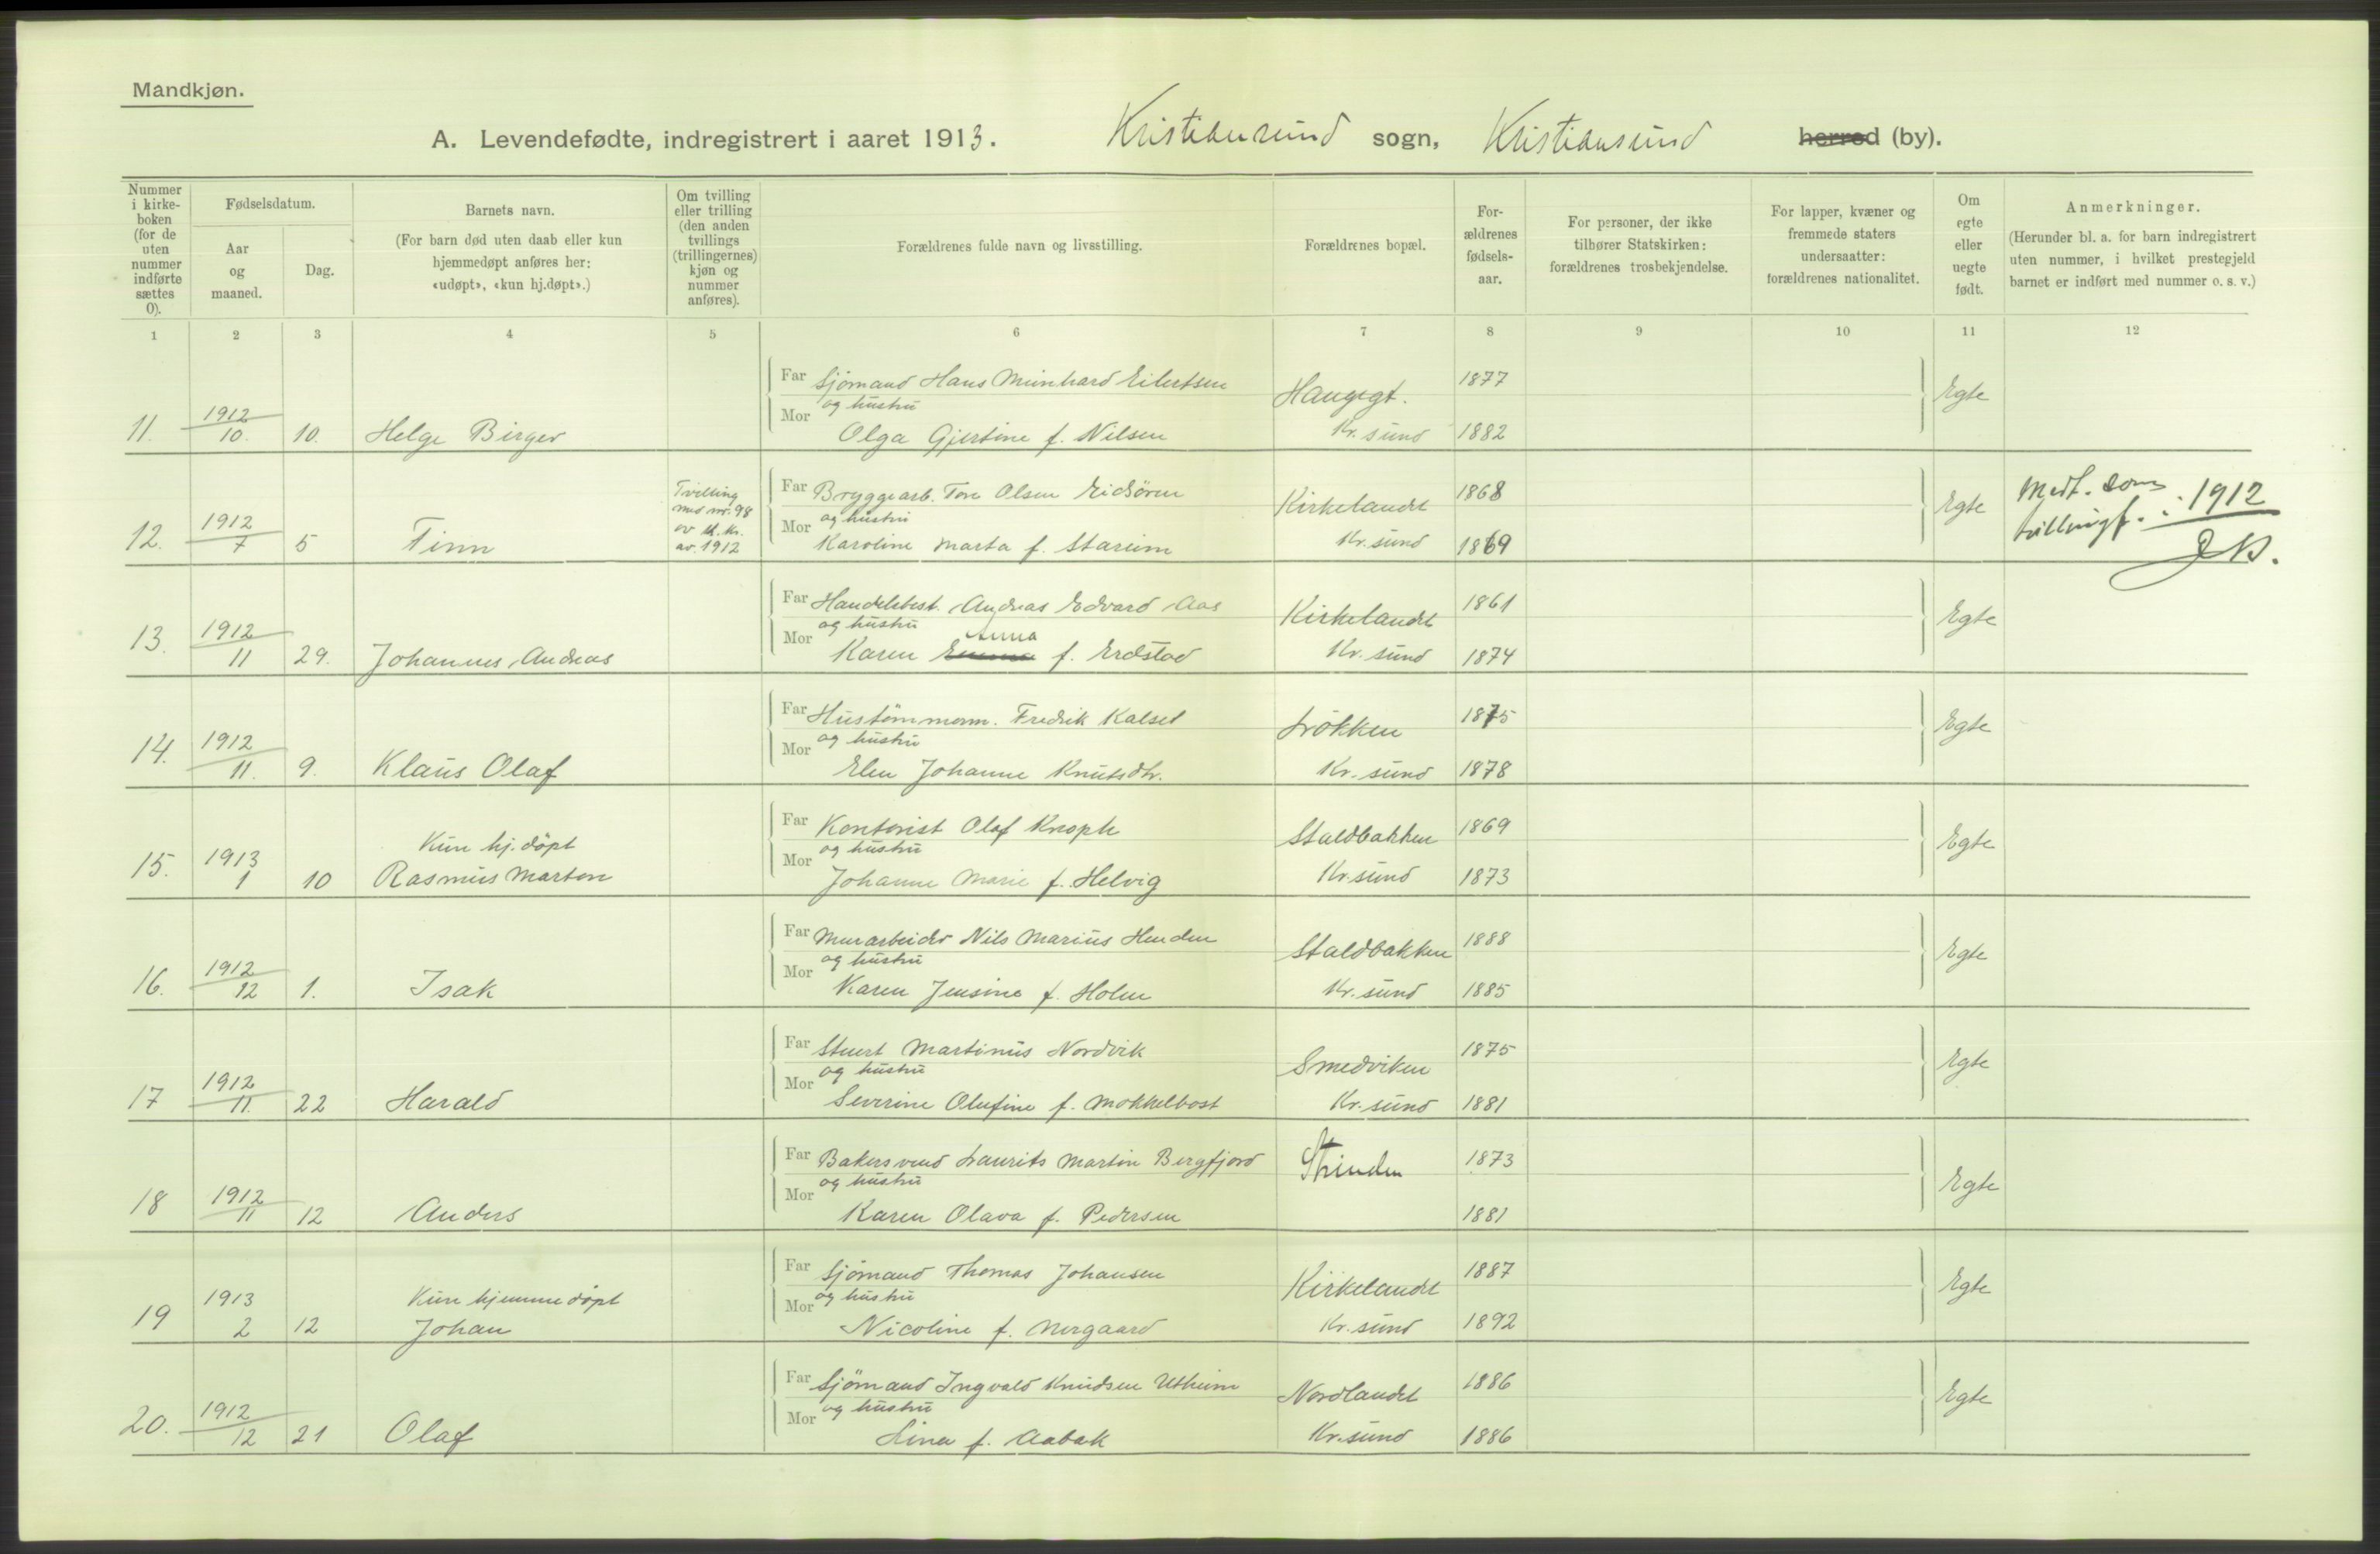 Mandkjøn.
A. Levendefødte, indregistrert i aaret 1913. Kristiansund sogn, Kristiansund herred (by).
Nummer i kirke-boken (for de uten nummer indførte sættes 0).
Fødselsdatum.
Aar og maaned.
Dag.
Barnets navn.
(For barn død uten daab eller kun hjemmedøpt anføres her: «udøpt», «kun hj.døpt».)
Om tvilling eller trilling (den anden tvillings (trillingernes) kjøn og nummer anføres).
Forældrenes fulde navn og livsstilling.
Forældrenes bopæl.
For-ældrenes fødsels-aar.
For personer, der ikke tilhører Statskirken: forældrenes trosbekjendelse.
For lapper, kvæner og fremmede staters undersaatter: forældrenes nationalitet.
Om egte eller uegte født.
Anmerkninger.
(Herunder bl. a. for barn indregistrert uten nummer, i hvilket prestegjeld barnet er indført med nummer o. s. v.)
1 2 3 4 5 6 7 8 9 10 11 12
Far Sjömand Hans Meinhard Eilertsen Haugegt. 1877 Egte
og hustru
11. 1912/10. 10. Helge Birger Mor Olga Gjertine f. Nilsen Kr.sund 1882
Tvilling med nr. 98 av kl. kr. av 1912
Far Bryggearb. Tore Olsen Eidsören Kirkelandet 1868 Egte
og hustru
12. 1912/7 5 Finn Mor Karoline Marta f. Stareim Kr.sund 1869
Medt. som tvillingf. : 1912
Far Handelsbest. Andreas Edvard Aas Kirkelandet 1861 Egte
og hustru
Anna
13. 1912/11 29. Johannes Andreas Mor Karen Emma f. Erdstad Kr.sund 1874
Far Hustömmerm. Fredrik Kalset Lökken 1875 Egte
og hustru
14. 1912/11. 9. Klaus Olaf Mor Elen Johanne Knutsdtr. Kr.sund 1878
Far Kontorist Olaf Knoph Staldbakken 1869 Egte
Kun hj.döpt og hustru
15. 1913 1 10 Rasmus Marton Mor Johanne Marie f. Helvig Kr.sund 1873
Far Murarbeider Nils Marius Henden Staldbakken 1888 Egte
og hustru
16. 1912/12 1. Isak Mor Karen Jensine f. Holm Kr.sund 1885
Far Stuert Martinus Nordvik Smedviken 1875 Egte
og hustru
17 1912/11. 22 Harald Mor Severine Olufine f. Mokkelbost Kr.sund 1881
Far Bakersvend Laurits Martin Bergfjord Strinden 1873 Egte
og hustru
18 1912/11 12 Anders Mor Karen Olava f. Pedersen 1881
Far Sjömand Thomas Johansen Kirkelandet 1887 Egte
Kun hjemmedöpt og hustru
19 1913 2 12 Johan Mor Nicoline f. Nergaard Kr.sund 1892
Far Sjömand Ingvald Knudsen Utheim Nordlandet 1886 Egte
og hustru
20. 1912/12 21 Olaf Mor Lina f. Aabak Kr.sund 1886